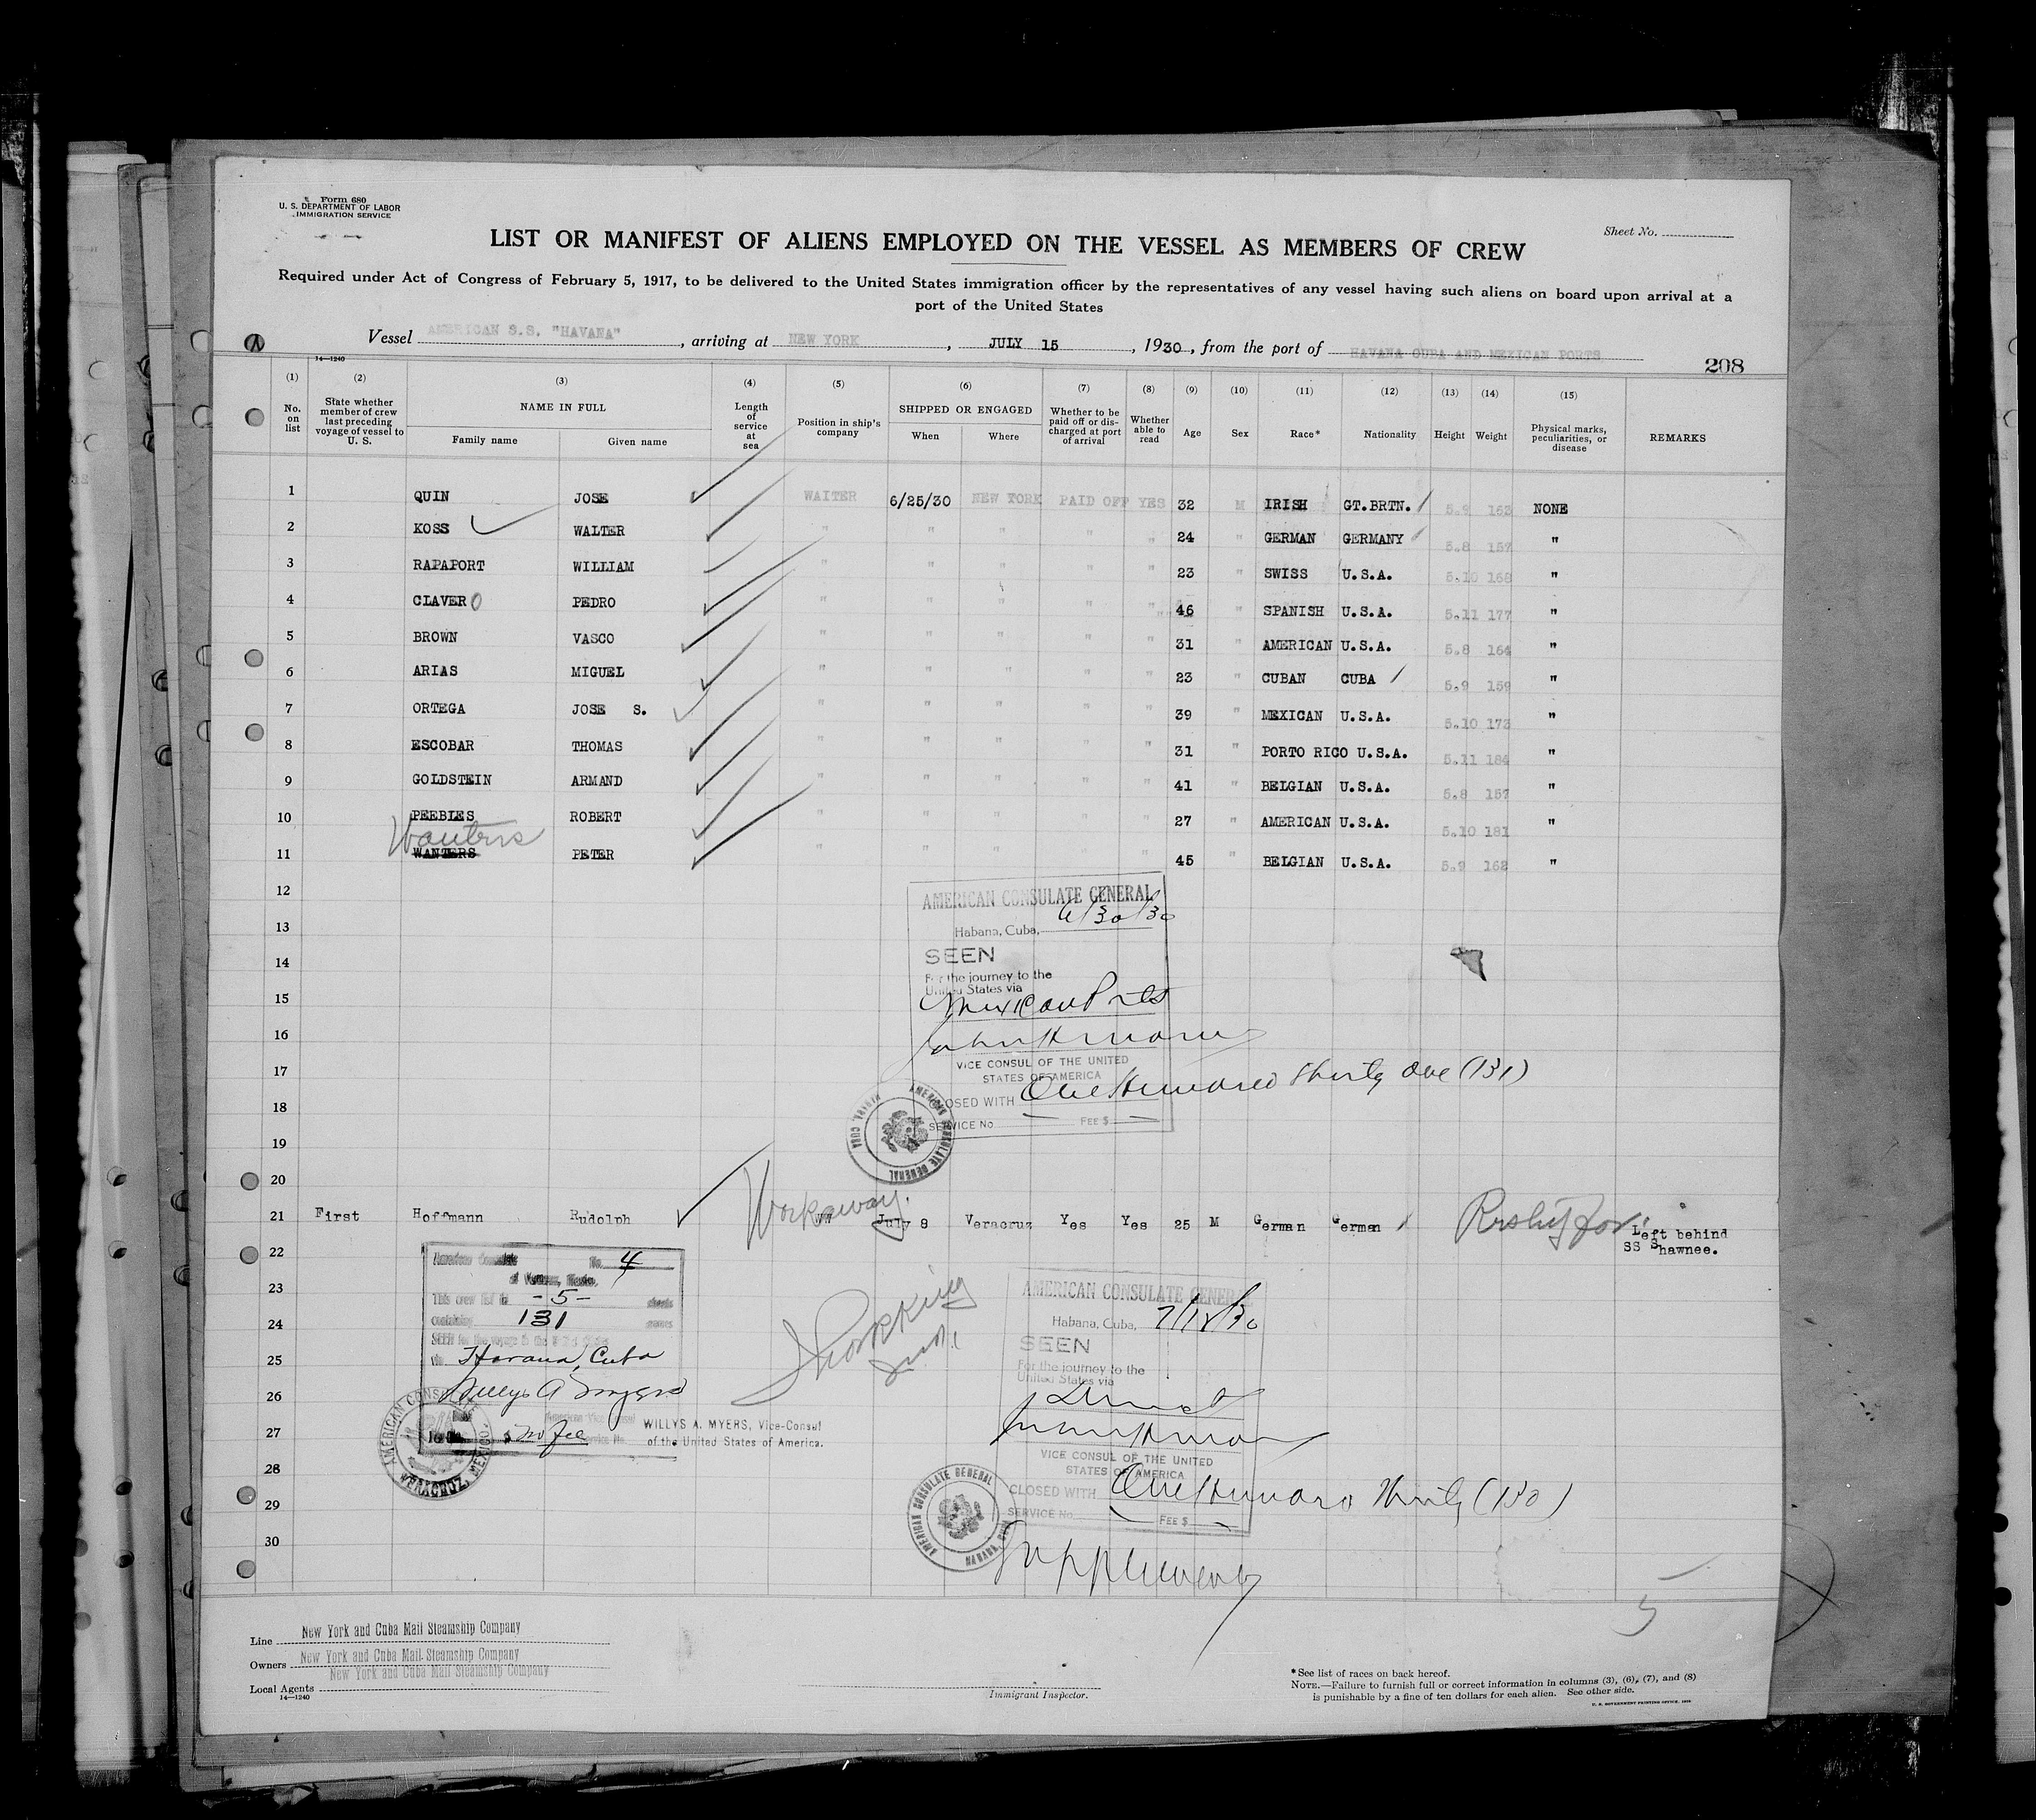 Form 680
U. S. DEPARTMENT OF LABOR
IMMIGRATION SERVICE
Sheet No.
LIST OR MANIFEST OF ALIENS EMPLOYED ON THE VESSEL AS MEMBERS OF CREW
Required under Act of Congress of February 5, 1917, to be delivered to the United States immigration officer by the representatives of any vessel having such aliens on board upon arrival at a
port of the United States
Vessel AMERICAN S.S. "HAVANA", arriving at NEW YORK, JULY 15, 1930, from the port of HAVANA CUBA AND MEXICAN PORTS
14—1240
208
(1) No. on list
(2) State whether member of crew last preceding voyage of vessel to U. S.
(3) NAME IN FULL Family name Given name
(4) Length of service at sea
(5) Position in ship's company
(6) SHIPPED OR ENGAGED When Where
(7) Whether to be paid off or discharged at port of arrival
(8) Whether able to read
(9) Age
(10) Sex
(11) Race*
(12) Nationality
(13) Height
(14) Weight
(15) Physical marks, peculiarities, or disease
REMARKS
1 QUIN JOSE WAITER 6/25/30 NEW YORK PAID OFF YES 32 M IRISH GT.BRTN. 5.9 163 NONE
2 KOSS WALTER " " " " " 24 " GERMAN GERMANY 5.8 157 "
3 RAPAPORT WILLIAM " " " " " 23 " SWISS U.S.A. 5.10 168 "
4 CLAVERO PEDRO " " " " " 46 " SPANISH U.S.A. 5.11 177 "
5 BROWN VASCO " " " " " 31 " AMERICAN U.S.A. 5.8 164 "
6 ARIAS MIGUEL " " " " " 23 " CUBAN CUBA 5.9 159 "
7 ORTEGA JOSE S. " " " " " 39 " MEXICAN U.S.A. 5.10 173 "
8 ESCOBAR THOMAS " " " " " 31 " PORTO RICO U.S.A. 5.11 184 "
9 GOLDSTEIN ARMAND " " " " " 41 " BELGIAN U.S.A. 5.8 157 "
10 PEEBLES ROBERT " " " " " 27 " AMERICAN U.S.A. 5.10 181 "
Wauters
11 WANTERS PETER " " " " " 45 " BELGIAN U.S.A. 5.9 162 "
12
13
14
15
16
17
18
19
20
AMERICAN CONSULATE GENERAL
6/30/30
Habana, Cuba,
SEEN
For the journey to the
United States via
Mexican Ports
VICE CONSUL OF THE UNITED
STATES OF AMERICA
CLOSED WITH One Hundred Thirty One (131)
SERVICE No. FEE $
AMERICAN CONSULATE GENERAL
HABANA, CUBA
Workaway.
21 First Hoffmann Rudolph July 8 Veracruz Yes Yes 25 M German German Left behind
SS Shawnee.
22
23
24
25
26
27
28
29
30
American Consulate No. 4
of Veracruz, Mexico,
This crew list in -5- sheets
containing 131 names
SEEN for the voyage to the
via Havana, Cuba
Willys A Myers
American Vice Consul
no fee
WILLYS A. MYERS, Vice-Consul
of the United States of America.
AMERICAN CONSULATE
VERACRUZ, MEXICO.
AMERICAN CONSULATE GENERAL
Habana, Cuba, 7/12/30
SEEN
For the journey to the
United States via
Direct
VICE CONSUL OF THE UNITED
STATES OF AMERICA
CLOSED WITH One Hundred Thirty (130)
SERVICE No. FEE $
AMERICAN CONSULATE GENERAL
HABANA CUBA
Supplement
5
Line New York and Cuba Mail Steamship Company
Owners New York and Cuba Mail Steamship Company
New York and Cuba Mail Steamship Company
Local Agents
14—1240
Immigrant Inspector.
*See list of races on back hereof.
NOTE.—Failure to furnish full or correct information in columns (3), (6), (7), and (8)
is punishable by a fine of ten dollars for each alien. See other side.
U. S. GOVERNMENT PRINTING OFFICE